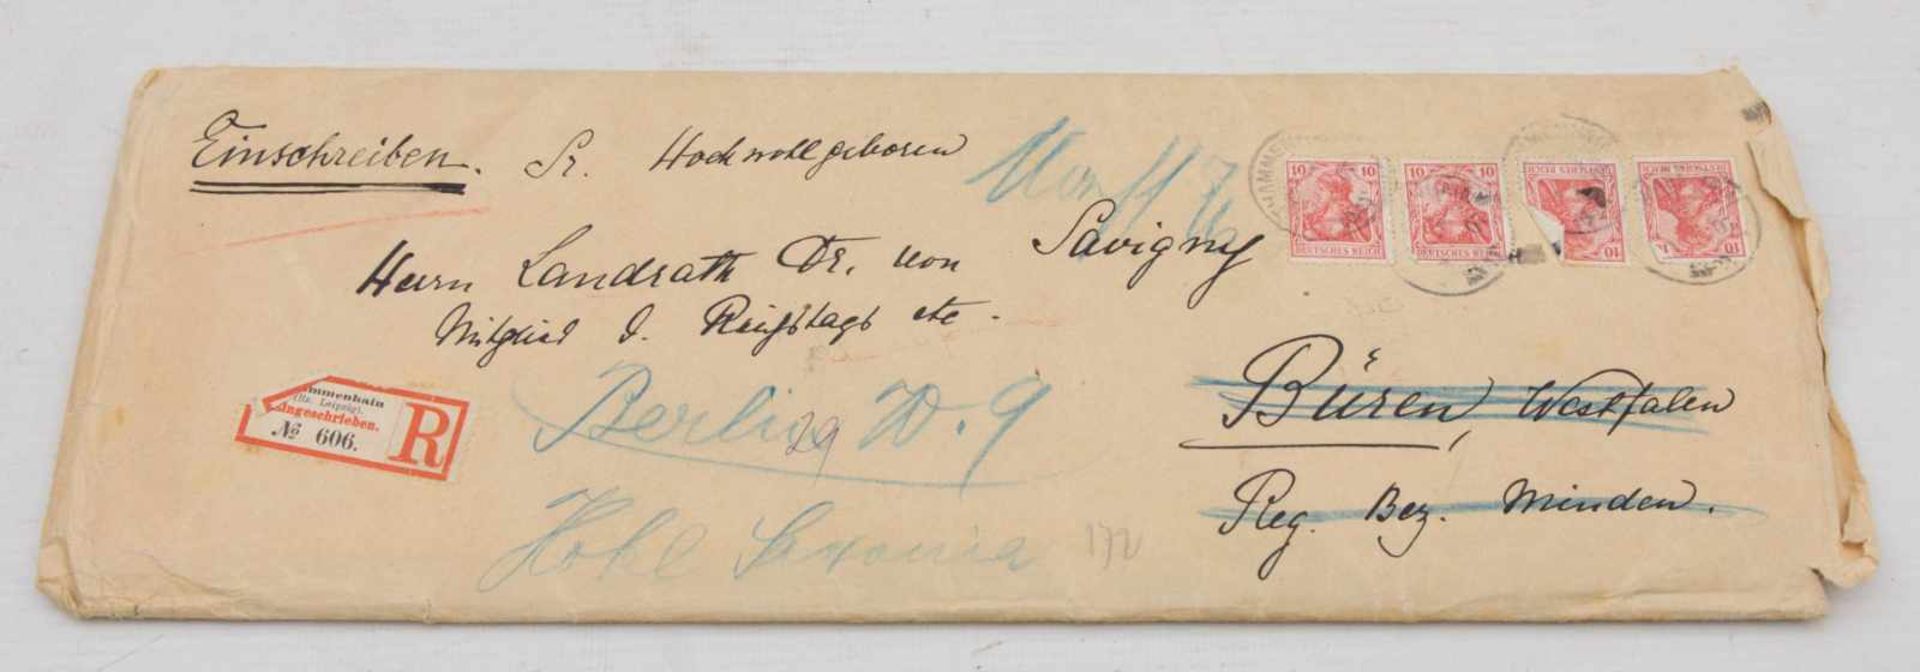 Einschreiben. Sr. Hochwohlgeboren
Herrn Landrath Dr. von Savigny
Mitglied d. Reichstags etc.
10 10
DEUTSCHES REICH
10 10
DEUTSCHES REICH
10
DEUTSCHES REICH
10
DEUTSCHES REICH
Büren, Westfalen
Reg. Bez. Minden.
mmenhain
(Bz. Leipzig).
ingeschrieben.
№ 606.
R
Berlin W. 9
29
Hotel Saxonia
172